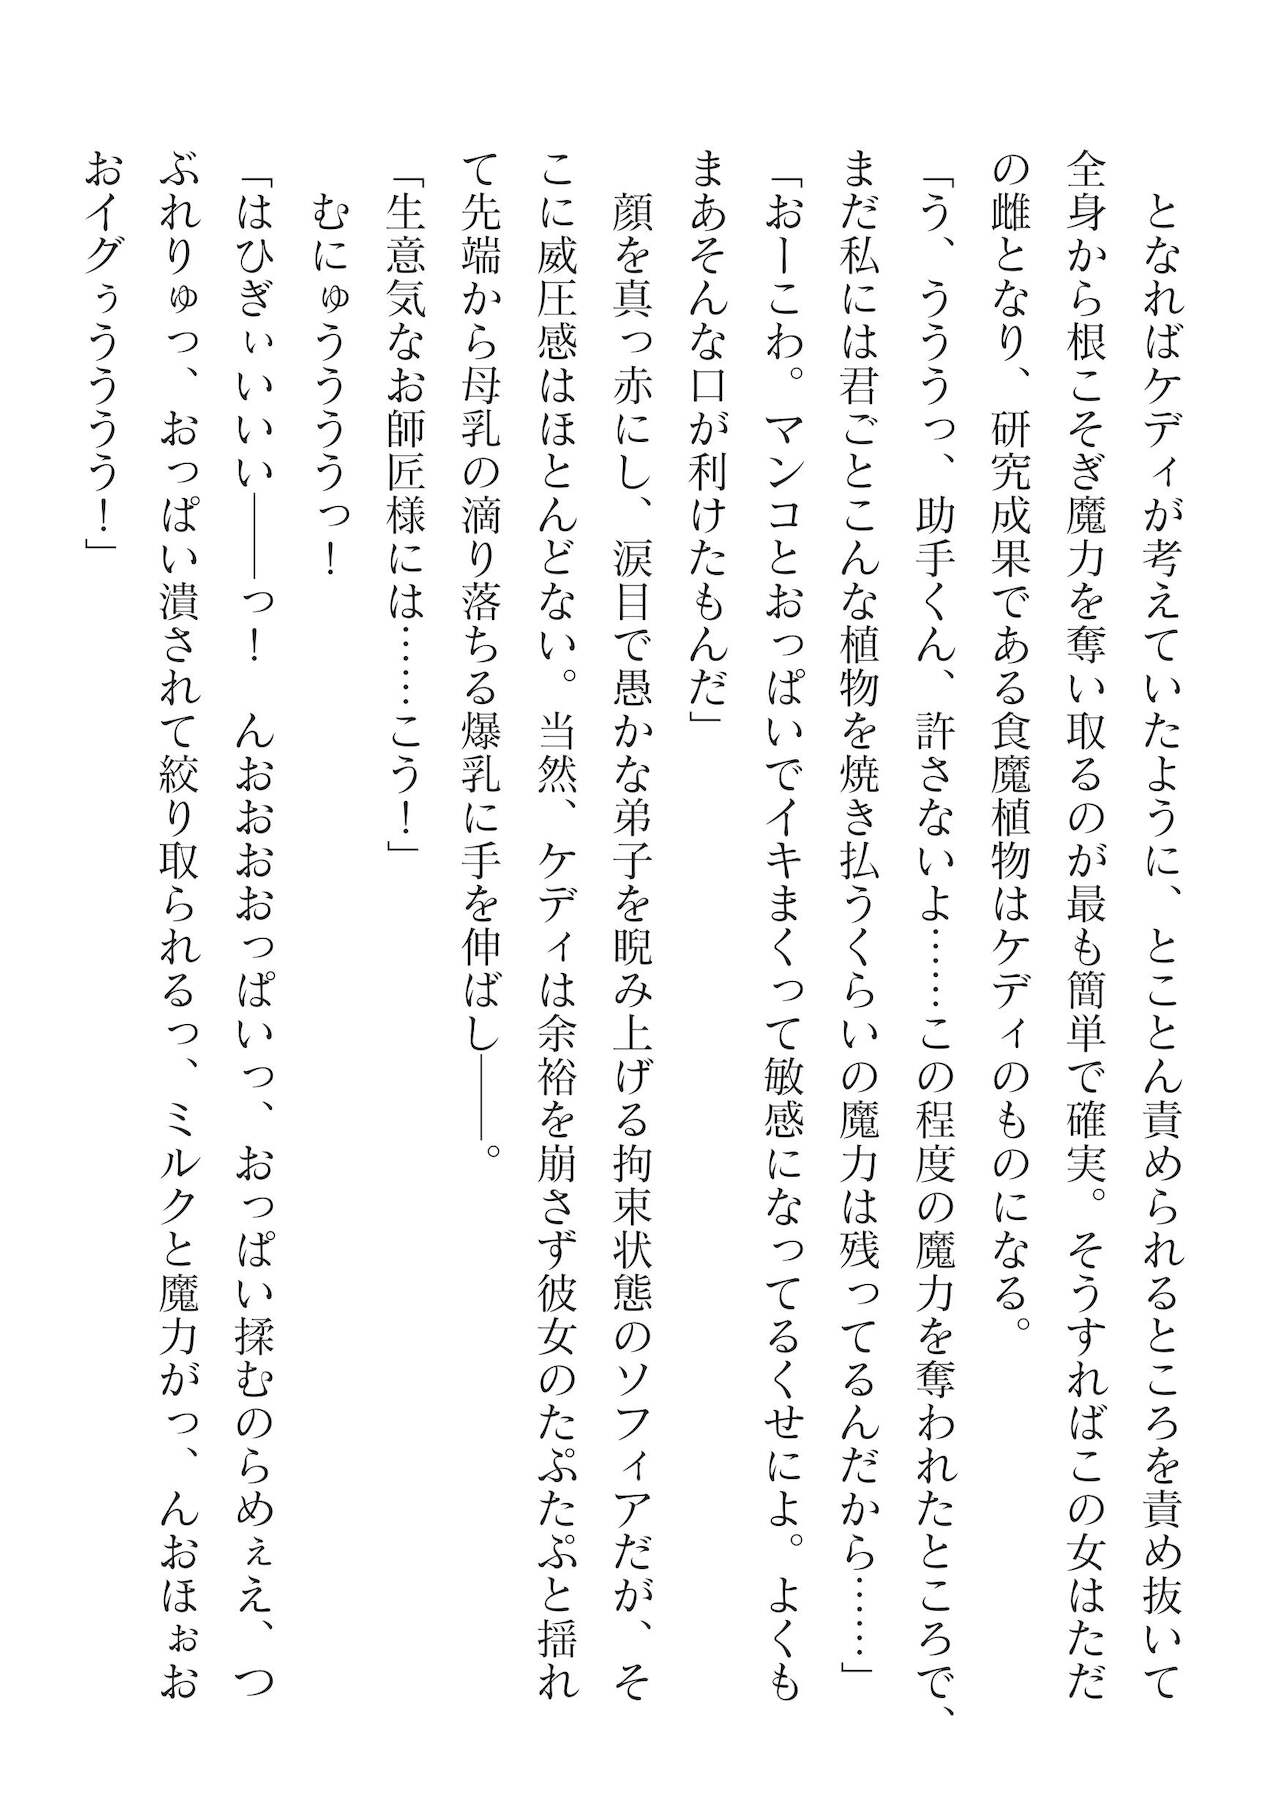 となればケディが考えていたように、とことん責められるところを責め抜いて
全身から根こそぎ魔力を奪い取るのが最も簡単で確実。そうすればこの女はただ
の雌となり、研究成果である食魔植物はケディのものになる。
「う、ううっ、助手くん、許さないよ……この程度の魔力を奪われたところで、
まだ私には君ごとこんな植物を焼き払うくらいの魔力は残ってるんだから……」
「おーこわ。マンコとおっぱいでイキまくって敏感になってるくせによ。よくも
まあそんな口が利けたもんだ」
顔を真っ赤にし、涙目で愚かな弟子を睨み上げる拘束状態のソフィアだが、そ
こに威圧感はほとんどない。当然、ケディは余裕を崩さず彼女のたぷたぷと揺れ
て先端から母乳の滴り落ちる爆乳に手を伸ばし――。
「生意気なお師匠様には……こう！」
むにゅうううっ！
「はひぎぃいいい――っ！　んおおおおっぱいっ、おっぱい揉むのらめぇえ、つ
ぶれりゅっ、おっぱい潰されて絞り取られるっ、ミルクと魔力がっ、んおほぉお
おイグぅうううう！」